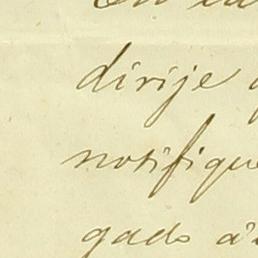 dirije
notifique
gads á